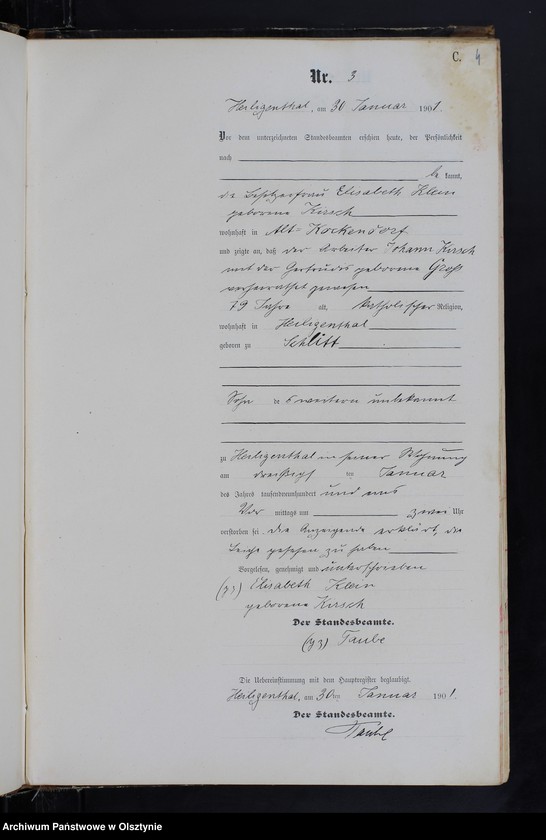 C. 4
Nr. 3
Heiligenthal, am 30 Januar 1901.
Vor dem unterzeichneten Standesbeamten erschien heute, der Persönlichkeit
nach
be kannt,
die Besitzerfrau Elisabeth Klein
geborene Kirsch
wohnhaft in Alt-Kockendorf
und zeigte an, daß der Arbeiter Johann Kirsch
mit der Gertrudis geborene Groß
verheirathet gewesen
79 Jahre alt, katholischer Religion,
wohnhaft in Heiligenthal
geboren zu Schlitt
Sohn de weitern unbekannt
zu Heiligenthal in seiner Wohnung
am dreißigst ten Januar
des Jahres tausendneunhundert und eins
Vor mittags um zwei Uhr
verstorben sei. die Anzeigende erklärt, die
Leiche gesehen zu haben
Vorgelesen, genehmigt und unterschrieben
(gz) Elisabeth Klein
geborene Kirsch
Der Standesbeamte.
(gz) Taube
Die Uebereinstimmung mit dem Hauptregister beglaubigt.
Heiligenthal, am 30ten Januar 1901.
Der Standesbeamte.
Taube
Archiwum Państwowe w Olsztynie